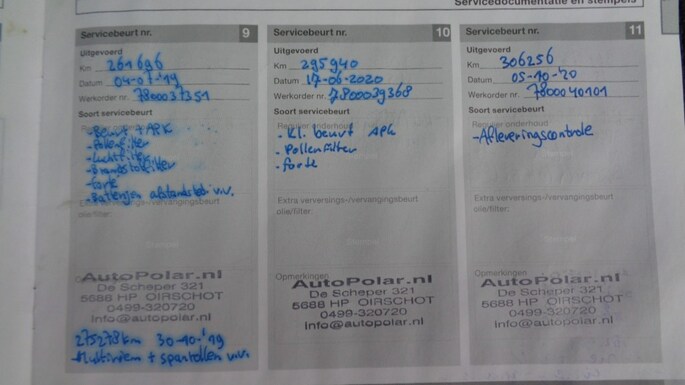 Servicedocumentatie en stempels
Servicebeurt nr. 9
Uitgevoerd
Km 261696
Datum 04-07-'19
Werkorder nr. 7800037351
Soort servicebeurt
Regulier onderhoud
-Beurt + APK
-Pollenfilter
-Luchtfilter
-Brandstoffilter
-forte
-Batterijen afstandsbed. v.v.
Extra verversings-/vervangingsbeurt
olie/filter:
Opmerkingen
AutoPolar.nl
De Scheper 321
5688 HP OIRSCHOT
0499-320720
Info@autopolar.nl
275278km 30-10-'19
-Multiriem + spanrollen v.v.
Servicebeurt nr. 10
Uitgevoerd
Km 295940
Datum 17-06-2020
Werkorder nr. 7800039368
Soort servicebeurt
Regulier onderhoud
-kl. beurt APK
-Pollenfilter
-forte
Extra verversings-/vervangingsbeurt
olie/filter:
Opmerkingen
AutoPolar.nl
De Scheper 321
5688 HP OIRSCHOT
0499-320720
Info@autopolar.nl
Servicebeurt nr. 11
Uitgevoerd
Km 306256
Datum 05-10-'20
Werkorder nr. 7800040101
Soort servicebeurt
Regulier onderhoud
-Afleveringscontrole
Extra verversings-/vervangingsbeurt
olie/filter:
Opmerkingen
AutoPolar.nl
De Scheper 321
5688 HP OIRSCHOT
0499-320720
Info@autopolar.nl